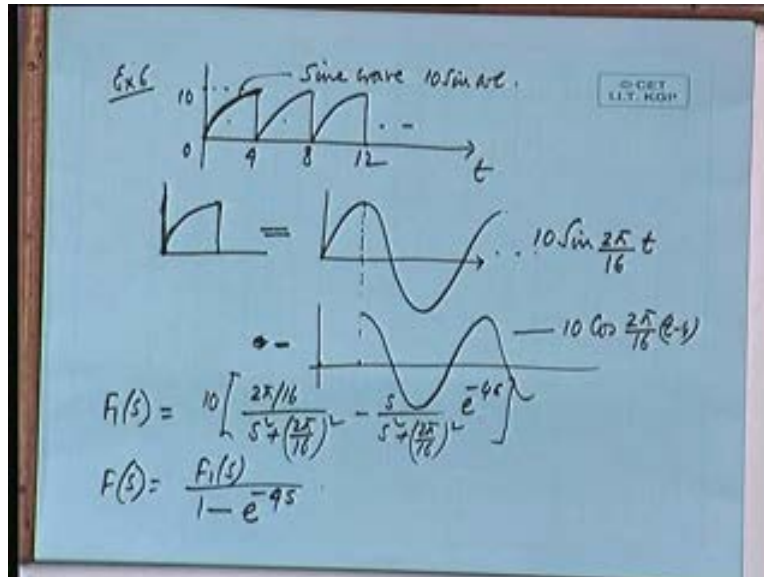 Ex 6
Sine wave 10 Sin ωt.
© CET
I.I.T. KGP
10
0 4 8 12 t
= .. 10 Sin 2π/16 t
- — 10 Cos 2π/16 (t-4)
F₁(s) = 10 [ 2π/16 / s²+(2π/16)² - s / s²+(2π/16)² e^-4s ]
F(s) = F₁(s) / 1 - e^-4s